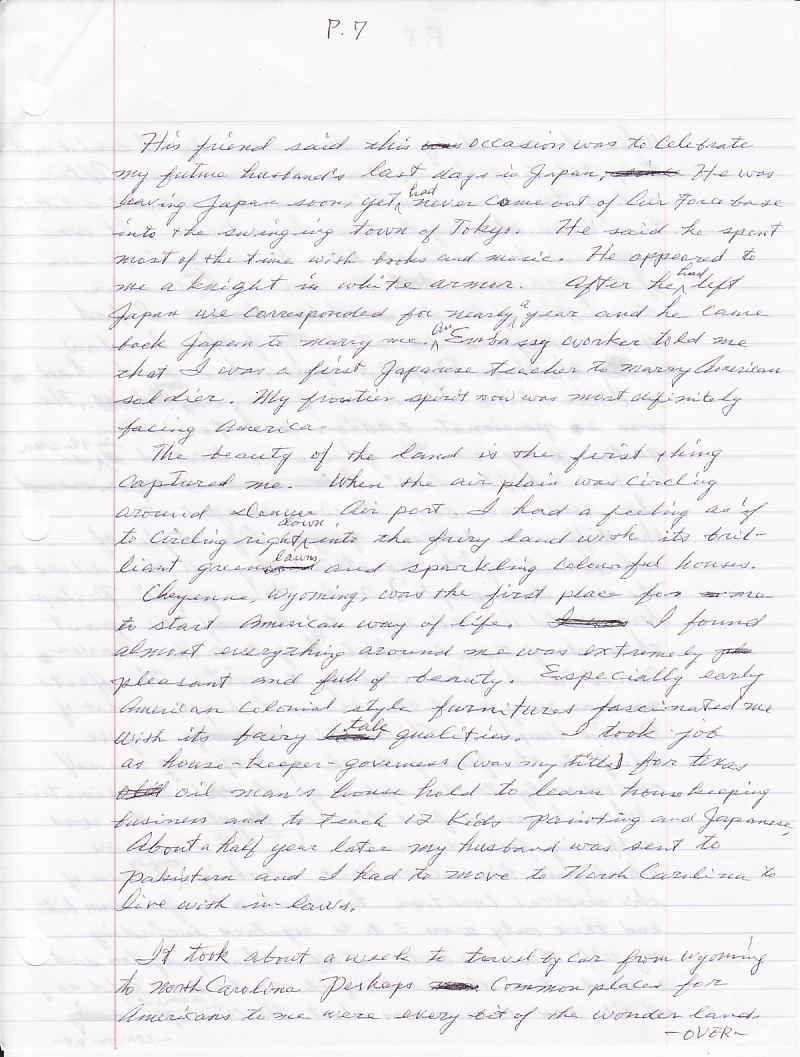 P. 7
His friend said this occasion was to celebrate
my future husband's last days in Japan, He was
leaving Japan soon, yet had never come out of Air Force base
into the swinging town of Tokyo. He said he spent
most of the time with books and music. He appeared to
me a knight in white armor. After he had left
Japan we corresponded for nearly a year and he came
back Japan to marry me. An Embassy worker told me
that I was a first Japanese teacher to marry American
soldier. My frontier spirit now was most definitely
facing America.
The beauty of the land is the first thing
captured me. When the air plain was circling
around Denver Air port. I had a feeling as if
to circling right down into the fairy land with its bril-
liant green lawns and sparkling colourful houses.
Cheyenne, Wyoming, was the first place for me
to start American way of life. I found
almost everything around me was extremely
pleasant and full of beauty. Especially early
American colonial style furnitures fascinated me
with its fairy tale qualities. I took job
as house-keeper-governess (was my title) for texas
oil man's house hold to learn housekeeping
business and to teach 12 kids painting and Japanese,
About a half year later my husband was sent to
Pakistan and I had to move to North Carolina to
live with in-laws.
It took about a week to travel by car from Wyoming
to North Carolina Perhaps common places for
Americans to me were every bit of the wonder land.
-OVER-